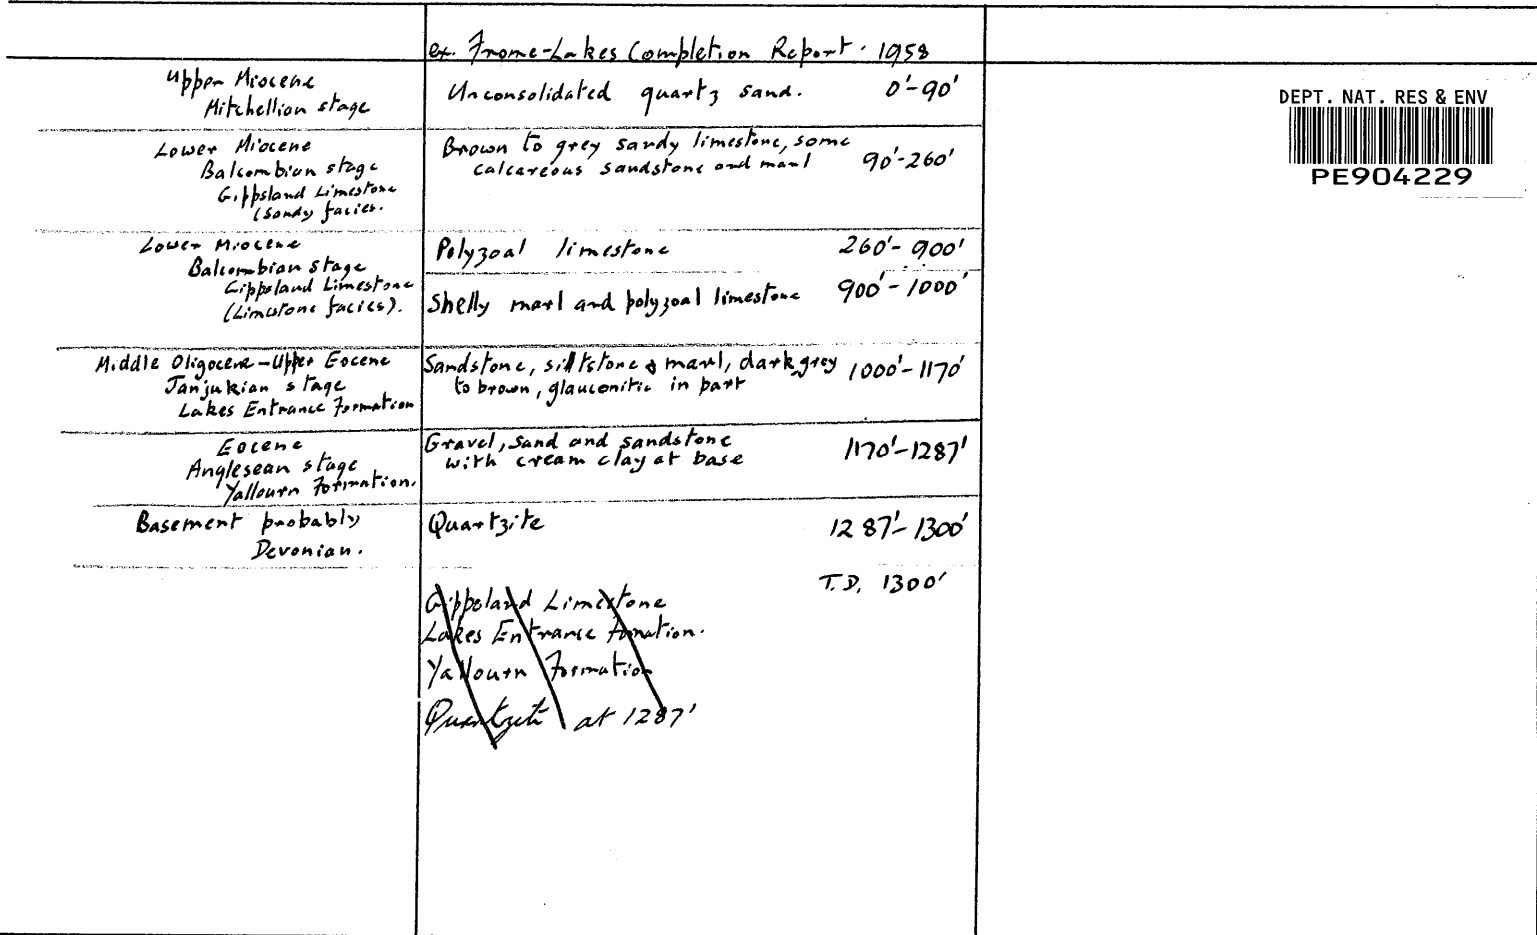 ex. Frome-Lakes Completion Report. 1958
Upper Miocene
Mitchellian stage
Unconsolidated quartz sand. 0'-90'
DEPT. NAT. RES & ENV
PE904229
Lower Miocene
Balcombian stage
Gippsland Limestone
(Sandy facies.
Brown to grey sandy limestone, some
calcareous sandstone and marl 90'-260'
Lower Miocene
Balcombian stage
Gippsland Limestone
(Limestone facies).
Polyzoal limestone 260'-900'
Shelly marl and polyzoal limestone 900'-1000'
Middle Oligocene-Upper Eocene
Janjukian stage
Lakes Entrance Formation
Sandstone, siltstone & marl, dark grey 1000'-1170'
to brown, glauconitic in part
Eocene
Anglesean stage
Yallourn Formation.
Gravel, sand and sandstone
with cream clay at base 1170'-1287'
Basement probably
Devonian.
Quartzite 1287'-1300'
T.D. 1300'
Gippsland Limestone
Lakes Entrance Fomation.
Yallourn Formation
Quartzite at 1287'